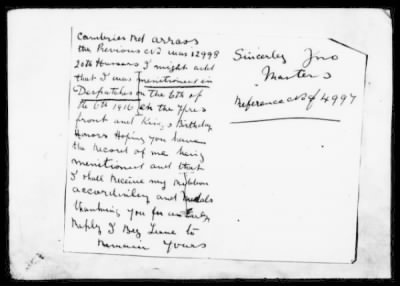 Cambries And Arrass
the Previous No was 12998
20th Hussars I might add
that I was menitioned in
Despatches on the 6th of
the 6th 1916 on the Ypres
front and Kings Birthday
Honors Hoping you have
the Record of me being
menitioned and that
I shall Receive my Ribbon
accordinley and Medals
thanking you for an Early
Reply I Beg Leave to
Remain Yours
Sincerley Jno
Masters
Reference No 4997